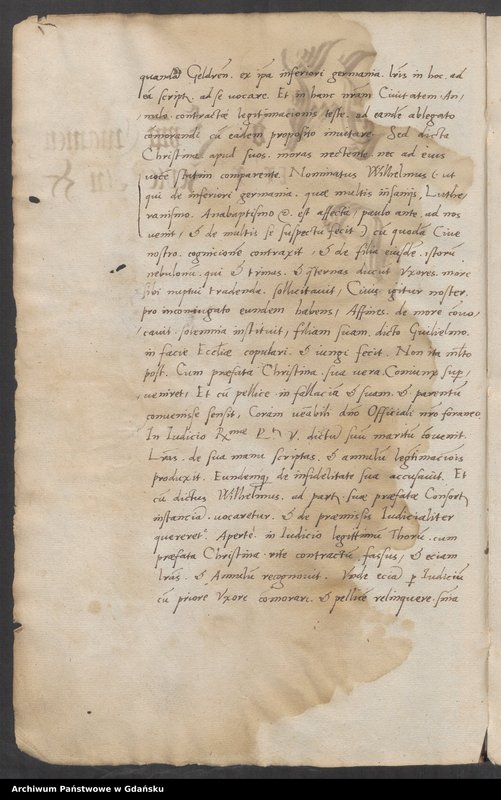 quandā Geldreñ. ex ipa inferiori germania. lris in hoc. ad
eā script. ad se vocare. Et in hanc nrām Civitatem. An,
,nulo. contractæ legitimacionis teste. ad eandē ablegato
cōmorandi cū eadem proposito invitare. Sed dicta
Christina. apud suos. moras nectente. nec ad eius
vocē statim comparente. Nominatus Wilhelmus (: ut
qui de inferiori germania. quæ multis insanijs, Luthe,
ranismo. Anabaptismo &. est affecta, paulo ante ad nos
venit, & de multis se suspectū fecit) cū quodā Cive
nostro. cognicionē contraxit, & de filia eiusdē. istorū
nebulonū. qui & trinas. & qternas ducūt Vxores. more
sibi nuptui tradenda. sollicitavit, Civis igitur noster.
pro inconiugato eundem habens, Affines. de more cōvo,
,cavit. solemnia instituit, filiam suam. dicto Guilielmo.
in facie Eccliæ copulari. & iungi fecit. Non ita mlto
post. Cum præfata Christina. sua vera Coniunx sup,
,veniret, Et cū pellice in fallaciā & suam. & parentū
convenisse sensit, Coram vēābili dnō Officiali nrō foraneo
In Iudicio Rmae P. V. dictū suū maritū cōvenit.
Lrās. de sua manu scriptas. & annulū legitimaciōis
produxit. Eundemq, de infidelitate sua accusavit. Et
cū dictus Wilhelmus. ad part. suæ præfatæ Consort
instanciā. vocaretur. & de præmissis Iudicialiter
quereret. Apertè in Iudicio legittimū Thorū. cum
præfata Christina rite contractū fassus, & eciam
lrās. & Annulū recognovit. Vnde eciā p Iudiciū
cū priore Vxore cōmorari. & pellicē relinquere. snīa
Archiwum Państwowe w Gdańsku